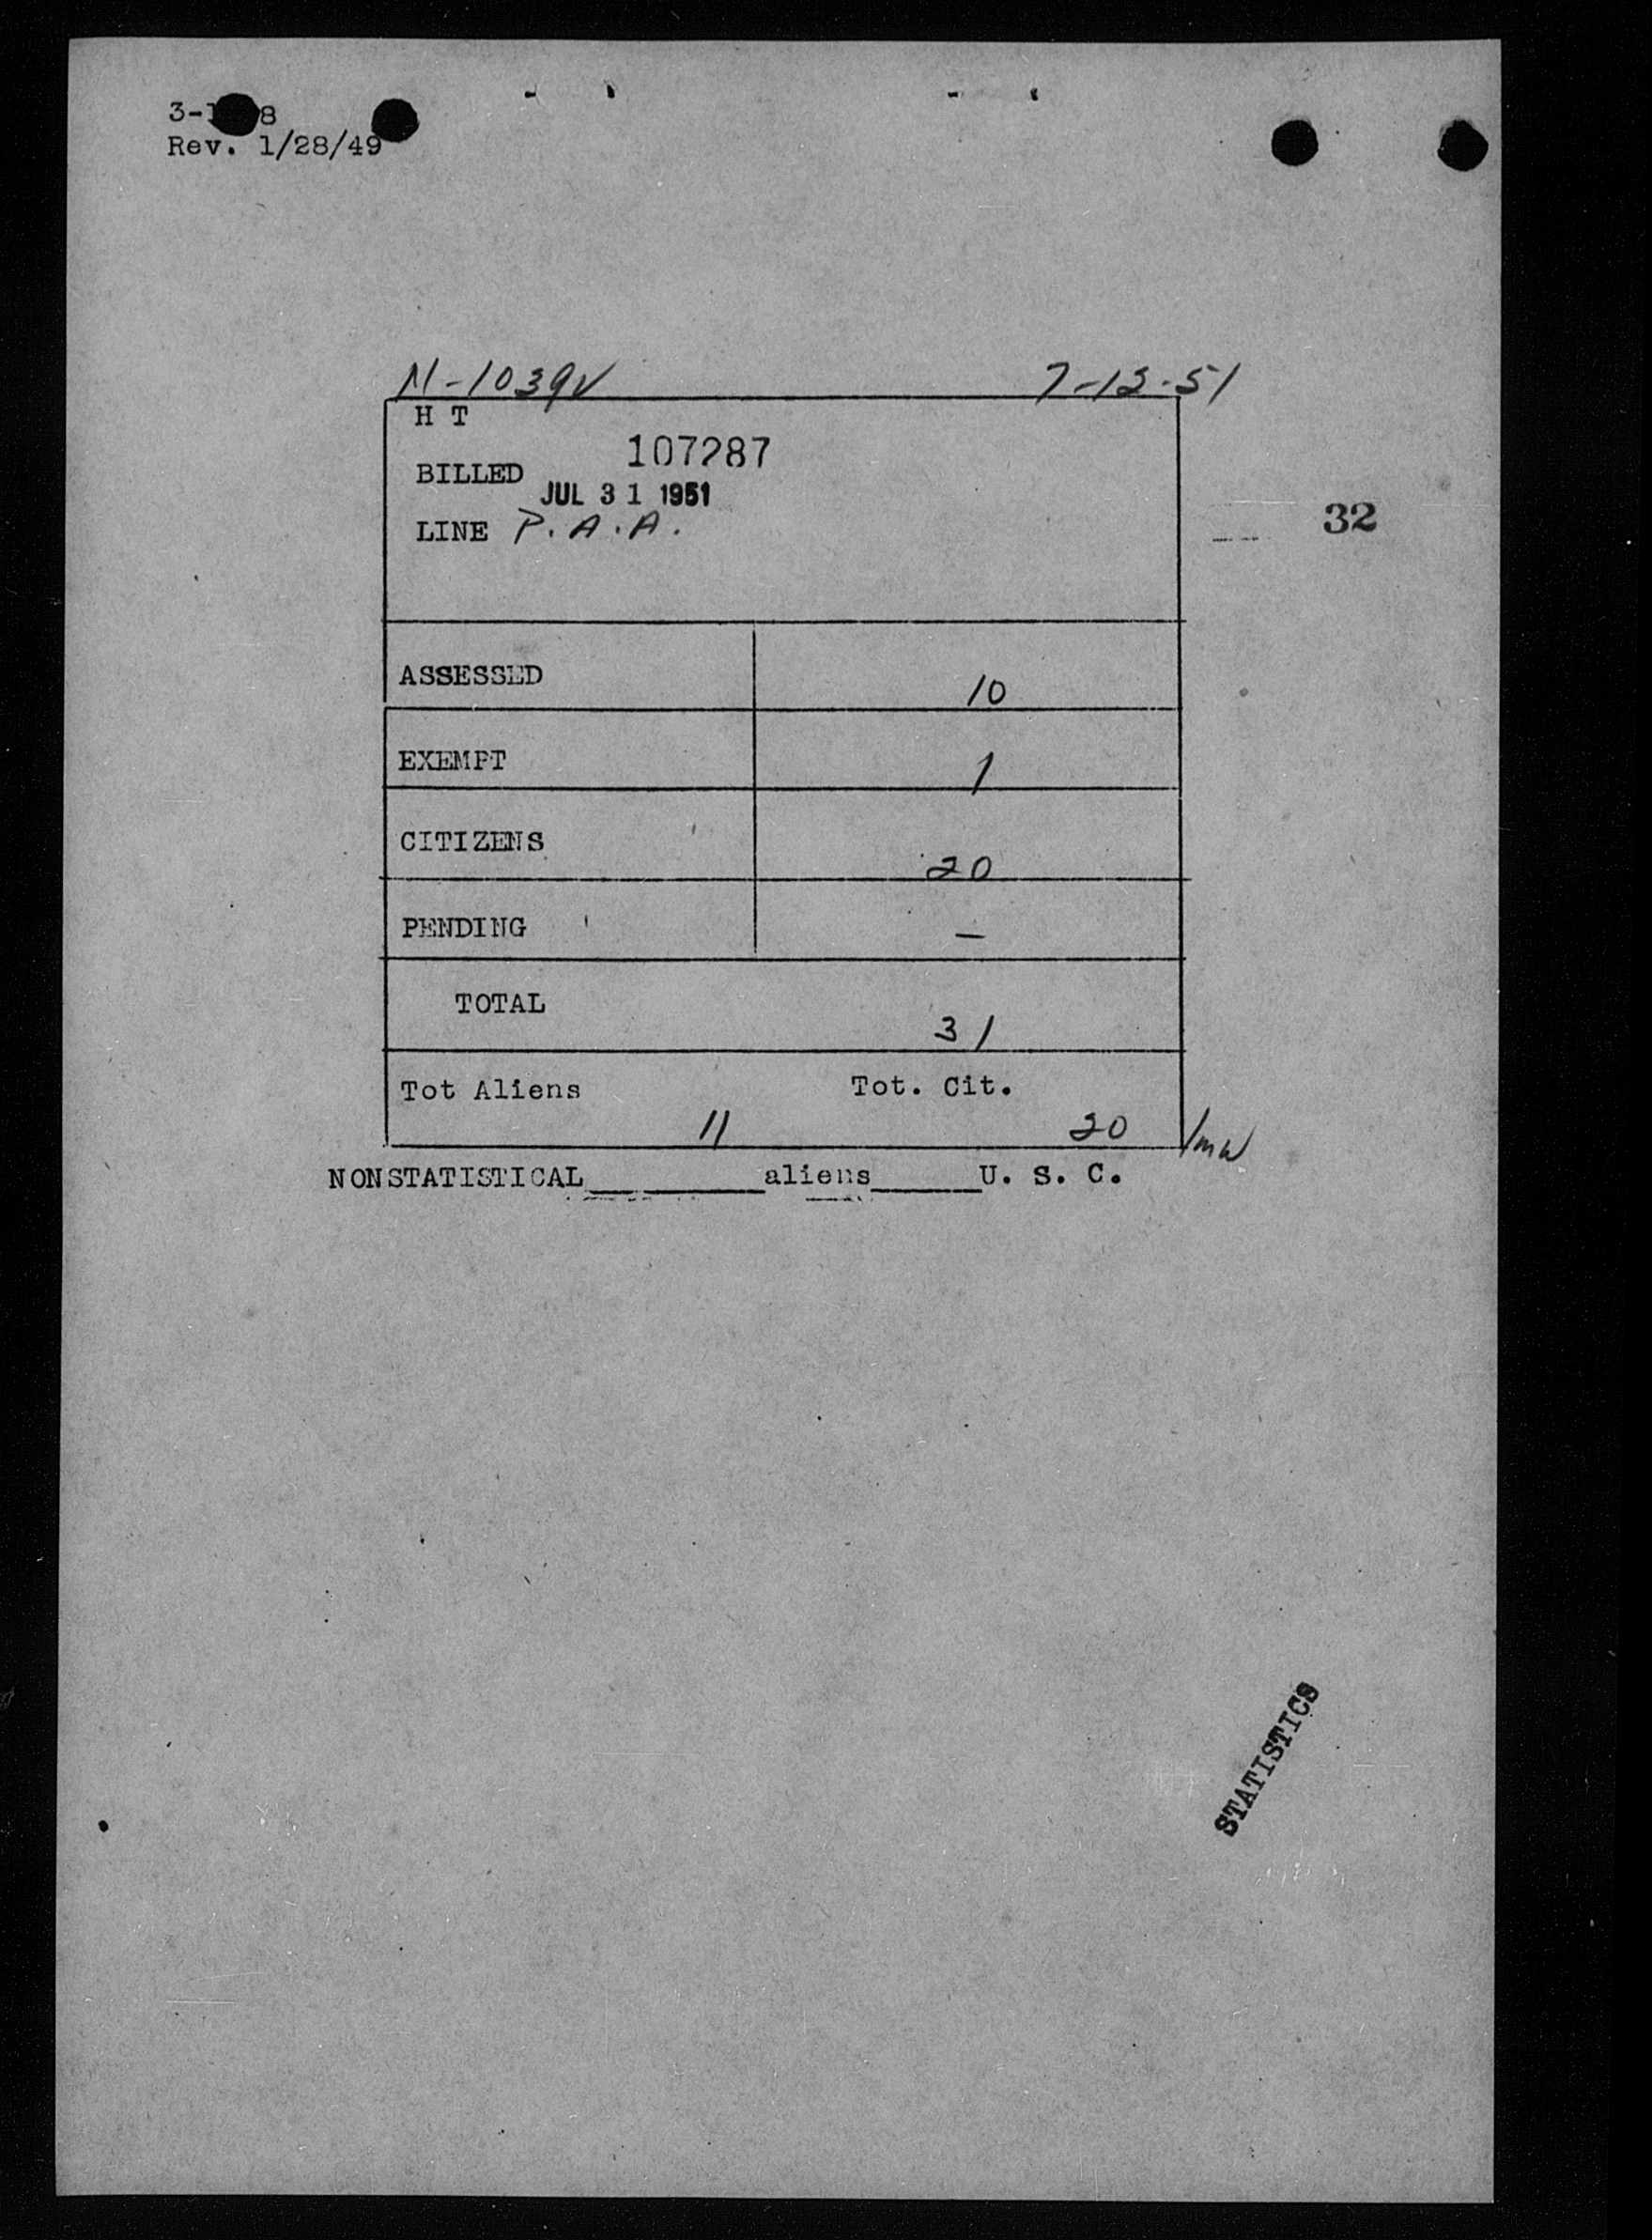 Rev. 1/28/49
N-1039V 7-12-51
H T
107287
BILLED
JUL 31 1951
LINE P.A.A.
32
ASSESSED 10
EXEMPT 1
CITIZENS 20
PENDING —
TOTAL
31
Tot Aliens Tot. Cit.
11 20
NONSTATISTICAL_________aliens______U. S. C.
STATISTICS